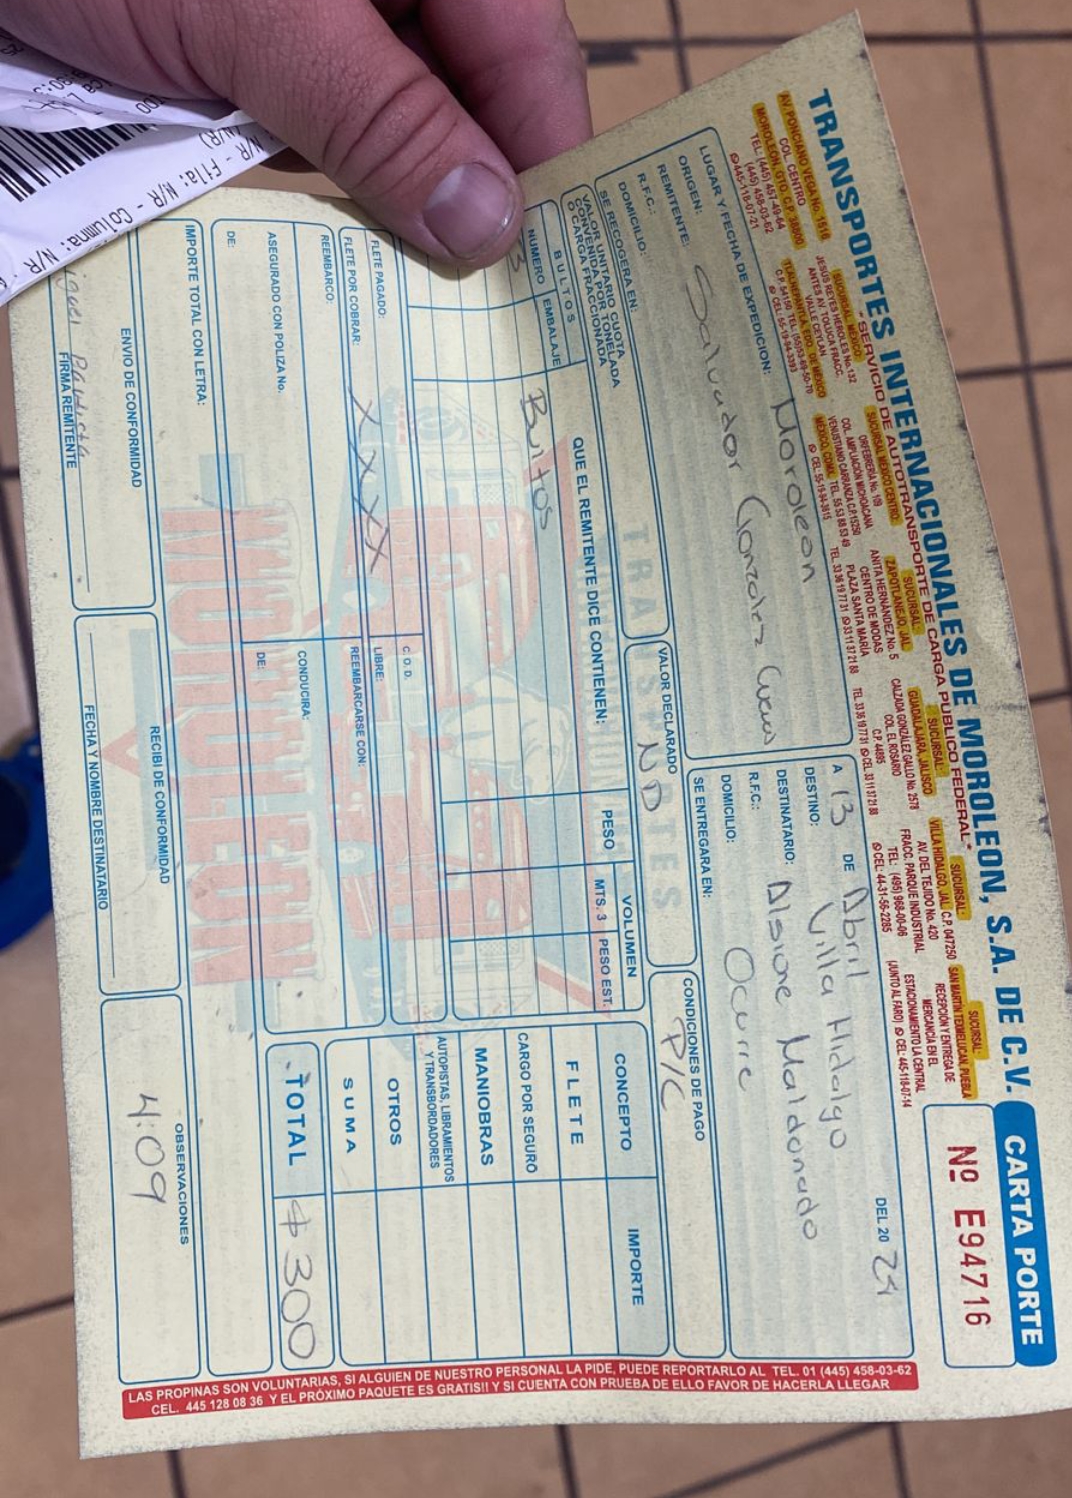 TRANSPORTES INTERNACIONALES DE MOROLEON, S.A. DE C.V.
"SERVICIO DE AUTOTRANSPORTE DE CARGA PUBLICO FEDERAL"
AV. PONCIANO VEGA No. 1616
COL. CENTRO
MOROLEON, GTO. C.P. 38800
TEL: (445) 457-49-64
(445) 458-03-62
445-118-07-21
SUCURSAL MÉXICO
JESÚS REYES HEROLES No. 132
ANTES AV. TOLUCA FRACC.
VALLE CEYLAN
TLALNEPANTLA, EDO. DE MÉXICO
SUCURSAL MÉXICO CENTRO:
ORFEBRERÍA No. 109
COL. AMPLIACIÓN MICHOACANA
VENUSTIANO CARRANZA C.P. 15250
MÉXICO, CDMX. TEL. 55 53 88 53 49
CEL. 55-19-94-3815
SUCURSAL:
ZAPOTLANEJO, JAL.
ANITA HERNÁNDEZ No. 5
CENTRO DE MODAS
PLAZA SANTA MARÍA
TEL. 33 36 19 77 31 33 11 37 21 88
SUCURSAL:
GUADALAJARA, JALISCO
CALZADA GONZÁLEZ GALLO No. 2578
COL. EL ROSARIO
C.P. 44895
TEL. 33 36 19 77 31 CEL. 33 11 37 21 88
SUCURSAL:
VILLA HIDALGO, JAL. C.P. 047250
AV. DEL TEJIDO No. 420
FRACC. PARQUE INDUSTRIAL
TEL: (495) 968-00-06
CEL: 44-31-56-2285
SUCURSAL:
SAN MARTÍN TEXMELUCAN, PUEBLA
RECEPCIÓN Y ENTREGA DE
MERCANCÍA EN EL
ESTACIONAMIENTO LA CENTRAL
(JUNTO AL FARO) CEL: 445-118-07-14
CARTA PORTE
Nº E94716
LUGAR Y FECHA DE EXPEDICION: Moroleon A 13 DE Abril DEL 20 24
ORIGEN:
DESTINO: Villa Hidalgo
REMITENTE: Salvador Gonzalez Cuevas
DESTINATARIO: Alsione Maldonado
R.F.C.:
R.F.C.:
DOMICILIO:
DOMICILIO: Ocurre
SE RECOGERA EN:
SE ENTREGARA EN:
VALOR UNITARIO CUOTA
CONVENIDA POR TONELADA
O CARGA FRACCIONADA
VALOR DECLARADO
ND
CONDICIONES DE PAGO
P/C
BULTOS
NUMERO EMBALAJE
QUE EL REMITENTE DICE CONTIENEN:
PESO
VOLUMEN
MTS. 3 PESO EST.
CONCEPTO IMPORTE
3 Bultos
FLETE
CARGO POR SEGURO
MANIOBRAS
AUTOPISTAS, LIBRAMIENTOS
Y TRANSBORDADORES
OTROS
SUMA
TOTAL $300
TRANSPORTES
MOROLEON
FLETE PAGADO:
C.O.D.
FLETE POR COBRAR: XXXX
LIBRE:
REEMBARCO:
REEMBARCARSE CON:
ASEGURADO CON POLIZA No.
CONDUCIRA:
DE:
DE:
IMPORTE TOTAL CON LETRA:
ENVIO DE CONFORMIDAD
FIRMA REMITENTE
RECIBI DE CONFORMIDAD
FECHA Y NOMBRE DESTINATARIO
OBSERVACIONES
4:09
LAS PROPINAS SON VOLUNTARIAS, SI ALGUIEN DE NUESTRO PERSONAL LA PIDE, PUEDE REPORTARLO AL TEL. 01 (445) 458-03-62
CEL. 445 128 08 36 Y EL PRÓXIMO PAQUETE ES GRATIS!! Y SI CUENTA CON PRUEBA DE ELLO FAVOR DE HACERLA LLEGAR
N/R - Fila: N/R - Columna: N/R
(N/R)